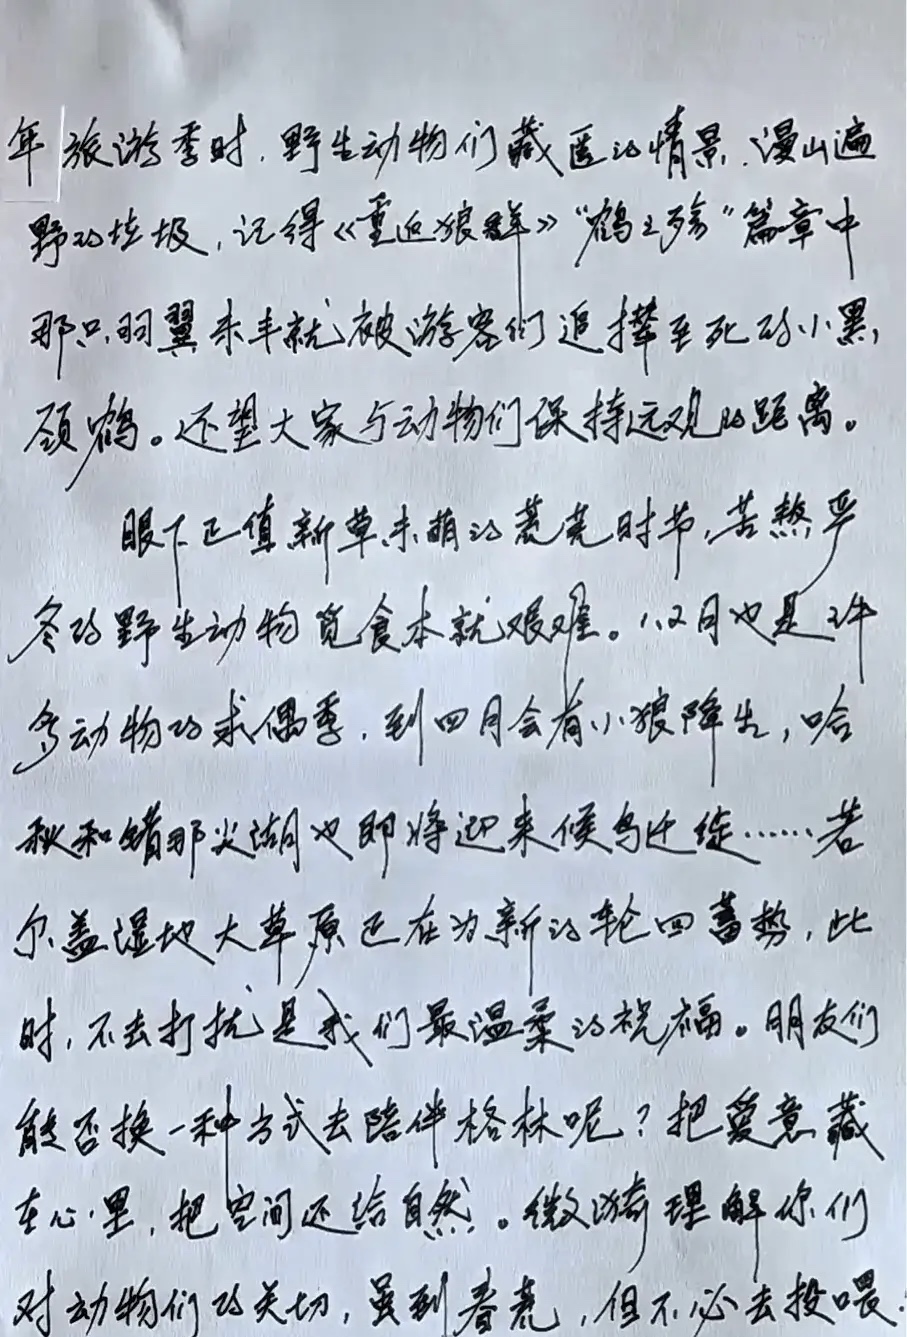 年旅游季时,野生动物们藏匿的情景,漫山遍
野的垃圾,记得《重返狼群》“鹤之殇”篇章中
那只羽翼未丰就被游客们追撵至死的小黑
颈鹤。还望大家与动物们保持远观的距离。
眼下正值新草未萌的荒芜时节,苦熬严
冬的野生动物觅食本就艰难。1、2月也是许
多动物的求偶季,到四月会有小狼降生,哈
秋和错那尖湖也即将迎来候鸟迁徙……若
尔盖湿地大草原正在为新的轮回蓄势,此
时,不去打扰是我们最温柔的祝福。朋友们
能否换一种方式去陪伴格林呢?把爱意藏
在心里,把空间还给自然。微漪理解你们
对动物们的关切,虽到春荒,但不必去投喂.